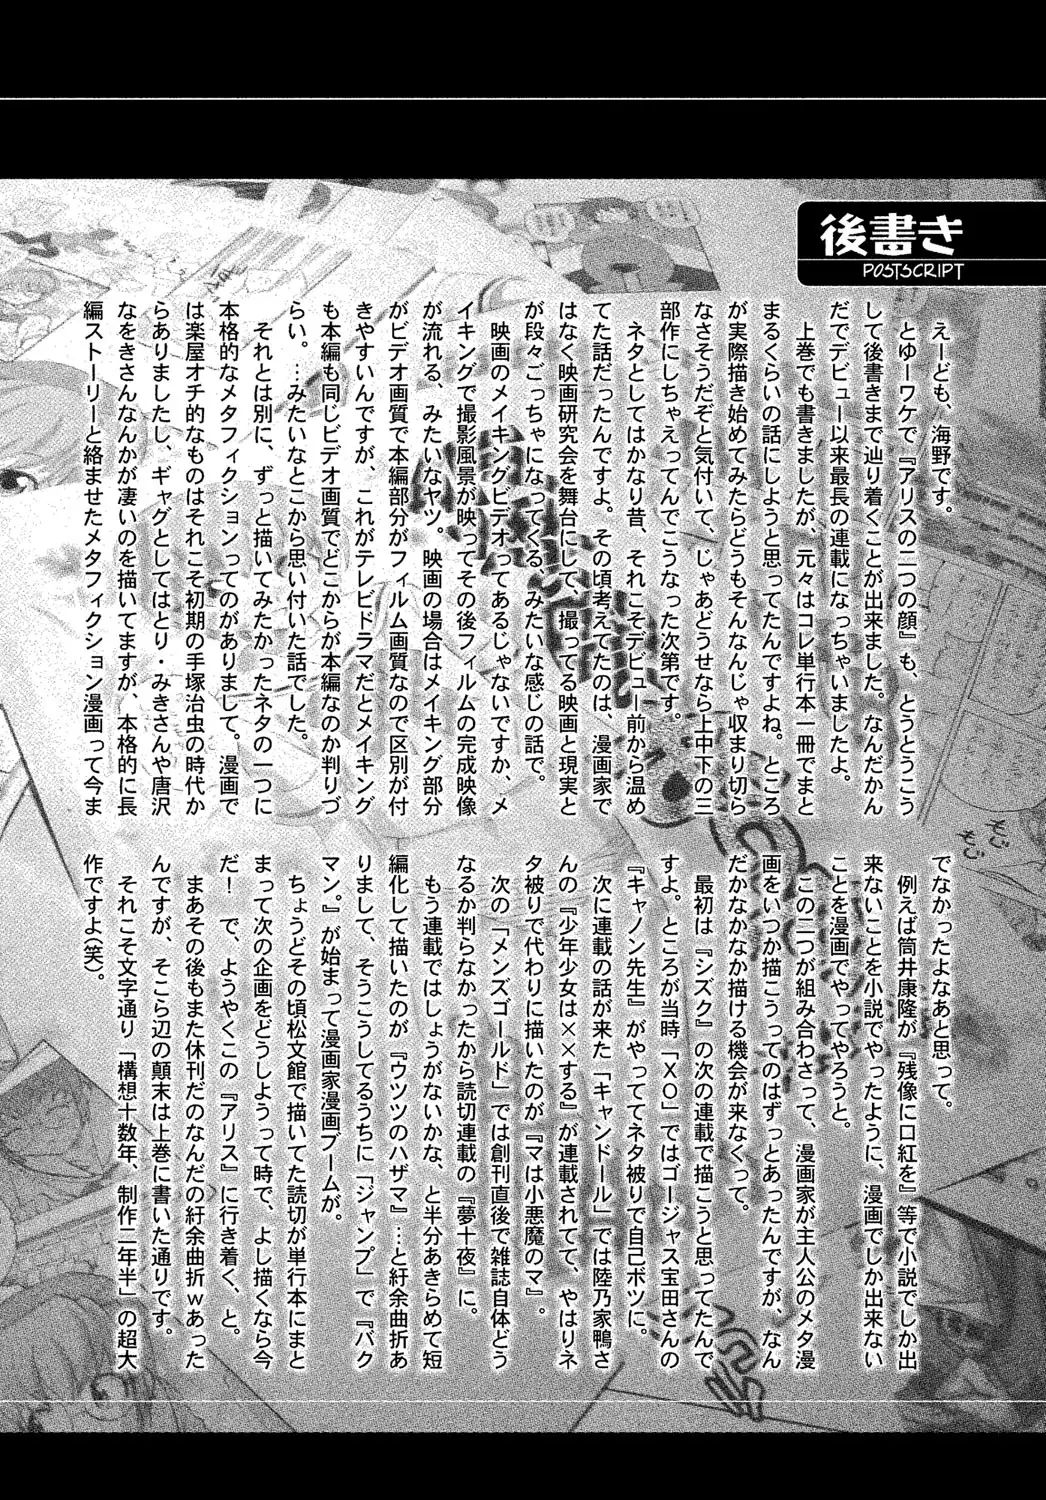 後書き
POSTSCRIPT
えーども、海野です。
とゆーワケで『アリスの二つの顔』も、とうとうこう
して後書きまで辿り着くことが出来ました。なんだかん
だでデビュー以来最長の連載になっちゃいましたよ。
上巻でも書きましたが、元々はコレ単行本一冊でまと
まるくらいの話にしようと思ってたんですよね。ところ
が実際描き始めてみたらどうもそんなんじゃ収まり切ら
なさそうだぞと気付いて、じゃあどうせなら上中下の三
部作にしちゃえってんでこうなった次第です。
ネタとしてはかなり昔、それこそデビュー前から温め
てた話だったんですよ。その頃考えてたのは、漫画家で
はなく映画研究会を舞台にして、撮ってる映画と現実と
が段々ごっちゃになってくる、みたいな感じの話で。
映画のメイキングビデオってあるじゃないですか、メ
イキングで撮影風景が映ってその後フィルムの完成映像
が流れる、みたいなヤツ。映画の場合はメイキング部分
がビデオ画質で本編部分がフィルム画質なので区別が付
きやすいんですが、これがテレビドラマだとメイキング
も本編も同じビデオ画質でどこからが本編なのか判りづ
らい。…みたいなとこから思い付いた話でした。
それとは別に、ずっと描いてみたかったネタの一つに
本格的なメタフィクションってのがありまして。漫画で
は楽屋オチ的なものはそれこそ初期の手塚治虫の時代か
らありましたし、ギャグとしてはとり・みきさんや唐沢
なをきさんなんかが凄いのを描いてますが、本格的に長
編ストーリーと絡ませたメタフィクション漫画って今ま
でなかったよなあと思って。
例えば筒井康隆が『残像に口紅を』等で小説でしか出
来ないことを小説でやったように、漫画でしか出来ない
ことを漫画でやってやろうと。
この二つが組み合わさって、漫画家が主人公のメタ漫
画をいつか描こうってのはずっとあったんですが、なん
だかなかなか描ける機会が来なくって。
最初は『シズク』の次の連載で描こうと思ってたんで
すよ。ところが当時「XO」ではゴージャス宝田さんの
『キャノン先生』がやっててネタ被りで自己ボツに。
次に連載の話が来た「キャンドール」では陸乃家鴨さ
んの『少年少女は××する』が連載されてて、やはりネ
タ被りで代わりに描いたのが『マは小悪魔のマ』。
次の「メンズゴールド」では創刊直後で雑誌自体どう
なるか判らなかったから読切連載の『夢十夜』に。
もう連載ではしょうがないかな、と半分あきらめて短
編化して描いたのが『ウツツのハザマ』…と紆余曲折あ
りまして、そうこうしてるうちに「ジャンプ」で『バク
マン。』が始まって漫画家漫画ブームが。
ちょうどその頃松文館で描いてた読切が単行本にまと
まって次の企画をどうしようって時で、よし描くなら今
だ！で、ようやくこの『アリス』に行き着く、と。
まあその後もまた休刊だのなんだの紆余曲折ｗあった
んですが、そこら辺の顛末は上巻に書いた通りです。
それこそ文字通り「構想十数年、制作二年半」の超大
作ですよ(笑)。
もじ
もじ